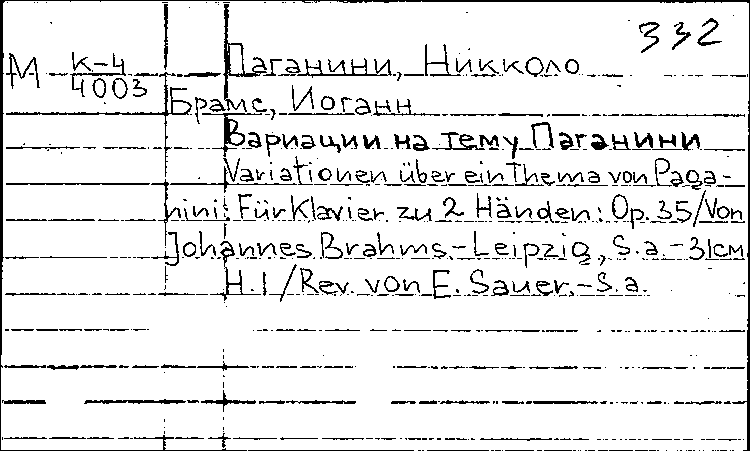 332
М К-4 Паганини, Никколо
4003
Брамс, Иоганн
Вариации на тему Паганини
Variationen über ein Thema von Paga-
nini: Für Klavier zu 2 Händen: Op. 35/Von
Johannes Brahms.-Leipzig, S.a.-31см
H.1/Rev. von E. Sauer.-S.a.